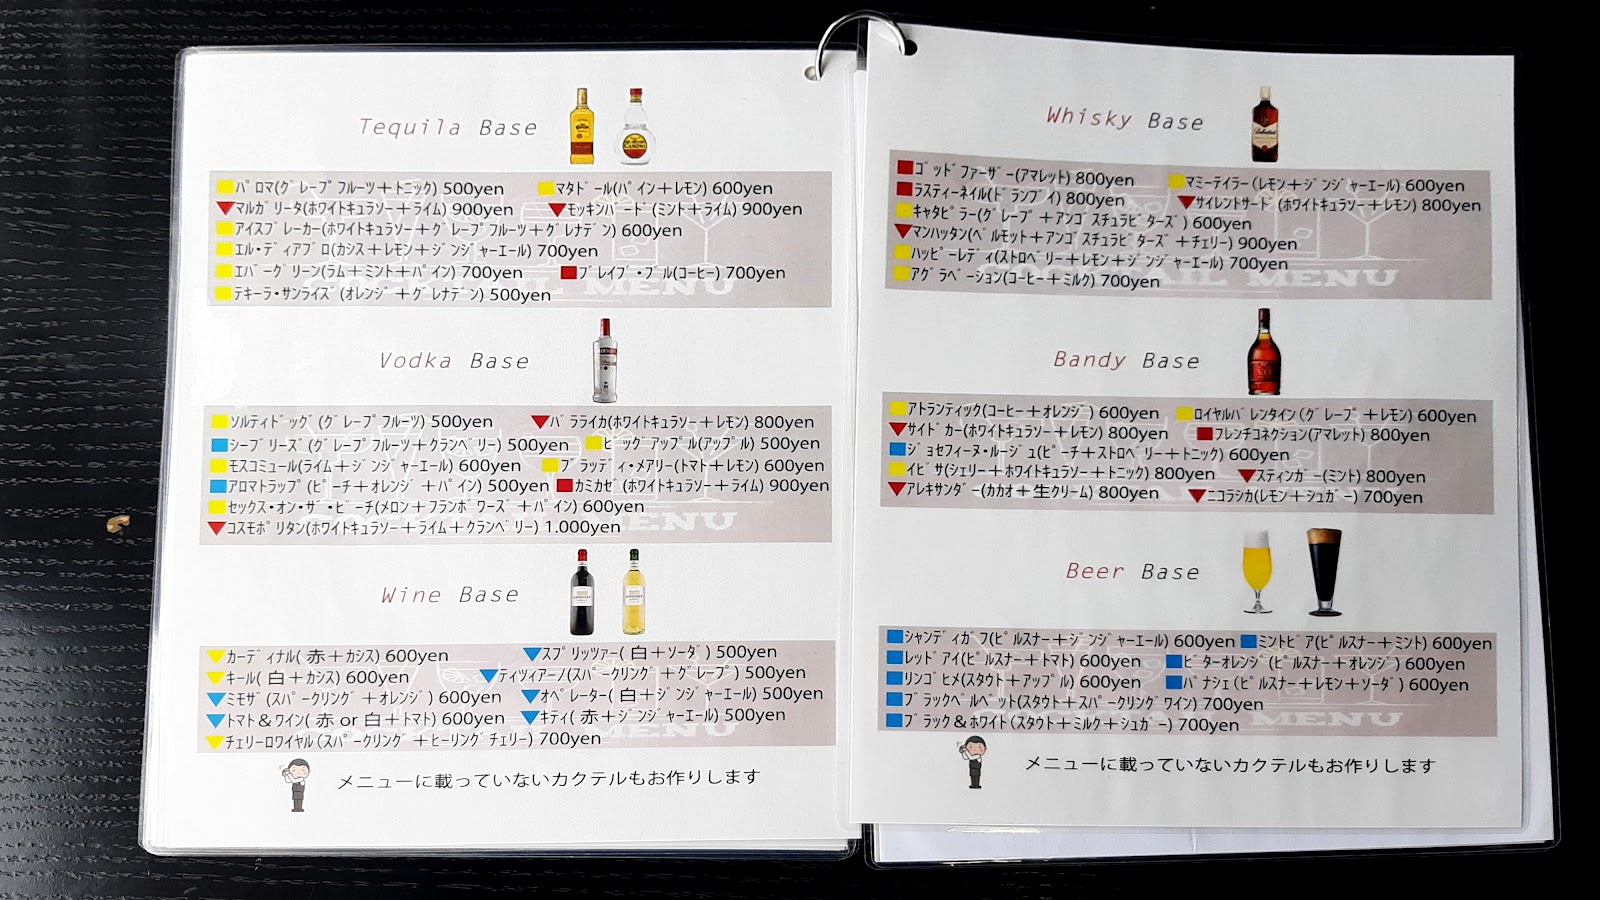 Tequila Base
パロマ(グレープフルーツ＋トニック) 500yen マタドール(パイン＋レモン) 600yen
マルガリータ(ホワイトキュラソー＋ライム) 900yen モッキンバード(ミント＋ライム) 900yen
アイスブレーカー(ホワイトキュラソー＋グレープフルーツ＋グレナデン) 600yen
エル・ディアブロ(カシス＋レモン＋ジンジャーエール) 700yen
エバーグリーン(ラム＋ミント＋パイン) 700yen ブレイブ・ブル(コーヒー) 700yen
テキーラ・サンライズ(オレンジ＋グレナデン) 500yen
COCKTAIL MENU
Vodka Base
ソルティドッグ(グレープフルーツ) 500yen バラライカ(ホワイトキュラソー＋レモン) 800yen
シーブリーズ(グレープフルーツ＋クランベリー) 500yen ビッグアップル(アップル) 500yen
モスコミュール(ライム＋ジンジャーエール) 600yen ブラッディ・メアリー(トマト＋レモン) 600yen
アロマトラップ(ピーチ＋オレンジ＋パイン) 500yen カミカゼ(ホワイトキュラソー＋ライム) 900yen
セックス・オン・ザ・ビーチ(メロン＋フランボワーズ＋パイン) 600yen
コスモポリタン(ホワイトキュラソー＋ライム＋クランベリー) 1.000yen
MENU
Wine Base
カーディナル(赤＋カシス) 600yen スプリッツァー(白＋ソーダ) 500yen
キール(白＋カシス) 600yen ティツィアーノ(スパークリング＋グレープ) 500yen
ミモザ(スパークリング＋オレンジ) 600yen オペレーター(白＋ジンジャーエール) 500yen
トマト＆ワイン(赤 or 白＋トマト) 600yen キティ(赤＋ジンジャーエール) 500yen
チェリーロワイヤル(スパークリング＋ヒーリングチェリー) 700yen
MENU
メニューに載っていないカクテルもお作りします
Whisky Base
ゴッドファーザー(アマレット) 800yen マミーテイラー(レモン＋ジンジャーエール) 600yen
ラスティーネイル(ドランブイ) 800yen サイレントサード(ホワイトキュラソー＋レモン) 800yen
キャタピラー(グレープ＋アンゴスチュラビターズ) 600yen
マンハッタン(ベルモット＋アンゴスチュラビターズ＋チェリー) 900yen
ハッピーレディ(ストロベリー＋レモン＋ジンジャーエール) 700yen
アグラベーション(コーヒー＋ミルク) 700yen
COCKTAIL MENU
Bandy Base
アトランティック(コーヒー＋オレンジ) 600yen ロイヤルバレンタイン(グレープ＋レモン) 600yen
サイドカー(ホワイトキュラソー＋レモン) 800yen フレンチコネクション(アマレット) 800yen
ジョセフィーヌ・ルージュ(ピーチ＋ストロベリー＋トニック) 600yen
イビザ(シェリー＋ホワイトキュラソー＋トニック) 800yen スティンガー(ミント) 800yen
アレキサンダー(カカオ＋生クリーム) 800yen ニコラシカ(レモン＋シュガー) 700yen
MENU
Beer Base
シャンディガフ(ピルスナー＋ジンジャーエール) 600yen ミントビア(ピルスナー＋ミント) 600yen
レッドアイ(ピルスナー＋トマト) 600yen ビターオレンジ(ピルスナー＋オレンジ) 600yen
リンゴヒメ(スタウト＋アップル) 600yen パナシェ(ピルスナー＋レモン＋ソーダ) 600yen
ブラックベルベット(スタウト＋スパークリングワイン) 700yen
ブラック＆ホワイト(スタウト＋ミルク＋シュガー) 700yen
MENU
メニューに載っていないカクテルもお作りします